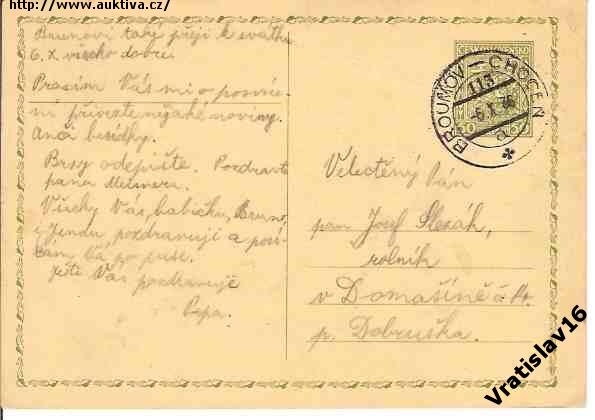 https://www.auktiva.cz/
Brunovi také přeji k svátku
6. X. všecko dobré.
Prosím Vás mi o posvícení
přivezte nějaké noviny.
Brzy odepište. Pozdravte
pana
Všechy Vás, babičku, Bruno,
i Jendu pozdravuji a
Ještě Vás pozdravuje
Pepa.
ČESKOSLOVENSKO
50 50
BROUMOV - CHOCEŇ
113
-6.X.36
Veléctěný pán
pan Josef Slezák,
rolník
v Domašíně č.
p. Dobruška.
Vratislav16